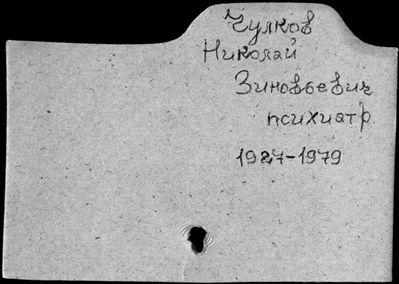 Чулков
Николай
Зиновьевич
психиатр.
1927-1979